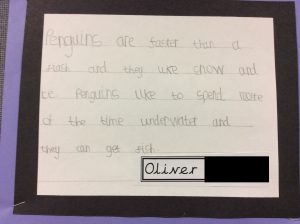 Penguins are faster than a
flash and they like snow and
ice. Penguins like to spend more
of the time underwater and
they can get fish
Oliver